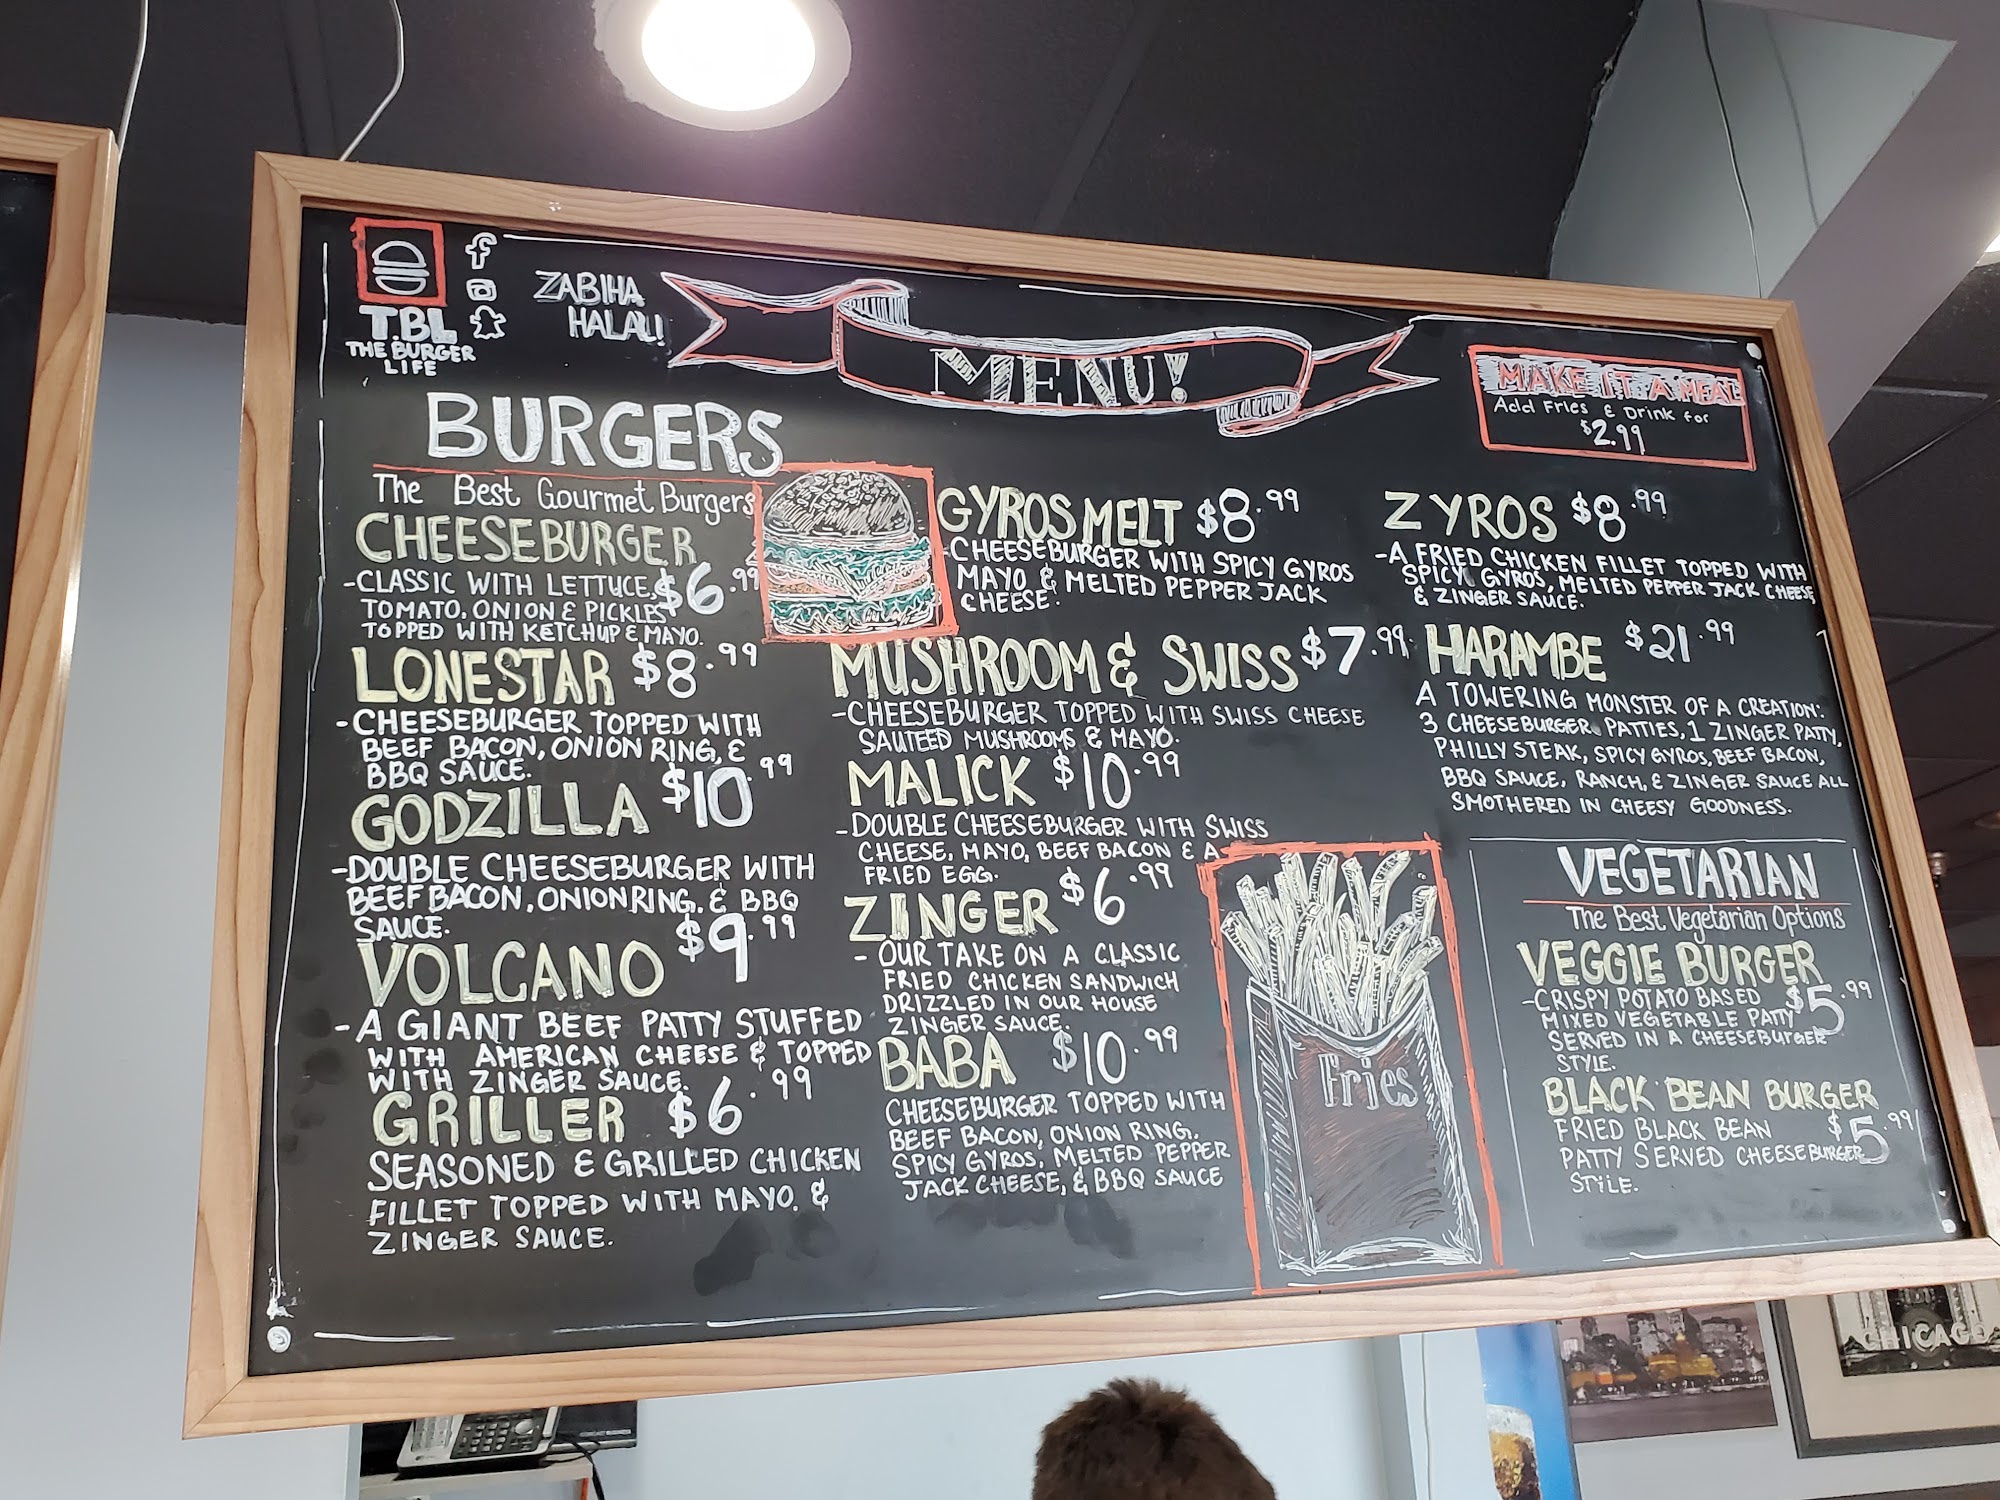 T.B.L
THE BURGER
LIFE
ZABIHA
HALAL!
MENU!
MAKE IT A MEAL
Add Fries & Drink for
$2.99
BURGERS
The Best Gourmet Burgers
CHEESEBURGER
$6.99
-CLASSIC WITH LETTUCE,
TOMATO, ONION & PICKLES
TOPPED WITH KETCHUP & MAYO.
LONESTAR $8.99
-CHEESEBURGER TOPPED WITH
BEEF BACON, ONION RING, &
BBQ SAUCE.
GODZILLA $10.99
-DOUBLE CHEESEBURGER WITH
BEEF BACON, ONION RING, & BBQ
SAUCE.
VOLCANO $9.99
-A GIANT BEEF PATTY STUFFED
WITH AMERICAN CHEESE & TOPPED
WITH ZINGER SAUCE.
GRILLER $6.99
SEASONED & GRILLED CHICKEN
FILLET TOPPED WITH MAYO, &
ZINGER SAUCE.
GYROS MELT $8.99
-CHEESEBURGER WITH SPICY GYROS
MAYO & MELTED PEPPER JACK
CHEESE.
MUSHROOM & SWISS $7.99
-CHEESEBURGER TOPPED WITH SWISS CHEESE
SAUTEED MUSHROOMS & MAYO.
MALICK $10.99
-DOUBLE CHEESEBURGER WITH SWISS
CHEESE, MAYO, BEEF BACON & A
FRIED EGG.
ZINGER $6.99
- OUR TAKE ON A CLASSIC
FRIED CHICKEN SANDWICH
DRIZZLED IN OUR HOUSE
ZINGER SAUCE.
BABA $10.99
CHEESEBURGER TOPPED WITH
BEEF BACON, ONION RING,
SPICY GYROS, MELTED PEPPER
JACK CHEESE, & BBQ SAUCE
Fries
ZYROS $8.99
-A FRIED CHICKEN FILLET TOPPED WITH
SPICY GYROS, MELTED PEPPER JACK CHEESE
& ZINGER SAUCE.
HARAMBE $21.99
A TOWERING MONSTER OF A CREATION:
3 CHEESEBURGER PATTIES, 1 ZINGER PATTY,
PHILLY STEAK, SPICY GYROS, BEEF BACON,
BBQ SAUCE, RANCH, & ZINGER SAUCE ALL
SMOTHERED IN CHEESY GOODNESS.
VEGETARIAN
The Best Vegetarian Options
VEGGIE BURGER
$5.99
-CRISPY POTATO BASED
MIXED VEGETABLE PATTY
SERVED IN A CHEESEBURGER
STYLE.
BLACK BEAN BURGER
$5.99
FRIED BLACK BEAN
PATTY SERVED CHEESEBURGER
STYLE.
CHICAGO